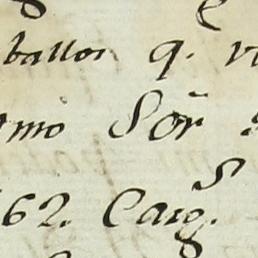 ballos q. v
mo Sor̃
62. Carg.